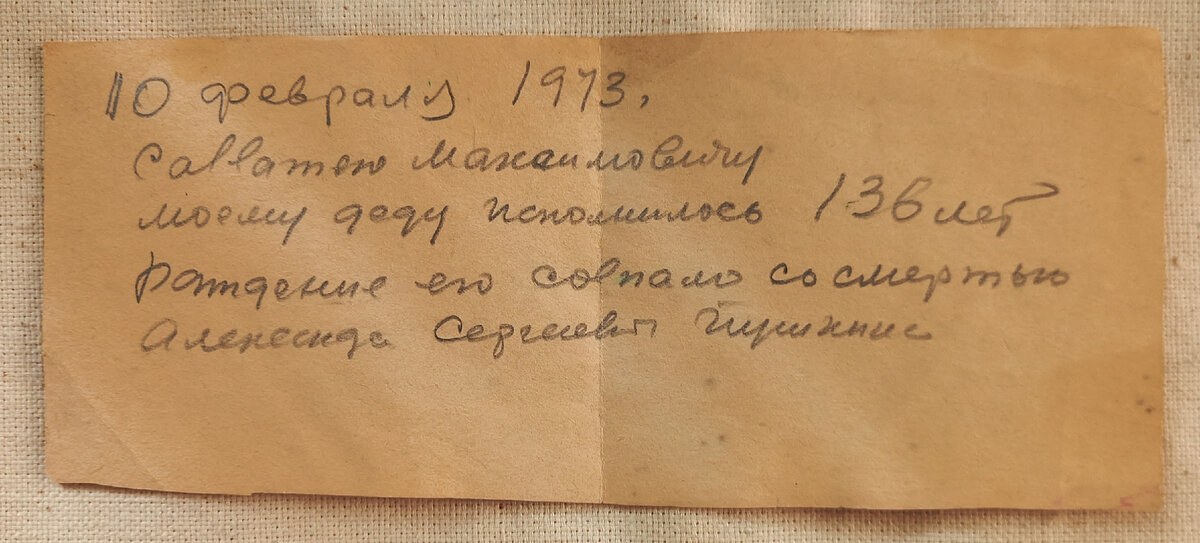 10 февраля 1973.
Савватею Максимовичу
моему деду исполнилось 136 лет
Рождение его совпало со смертью
Александра Сергеевич Пушкина